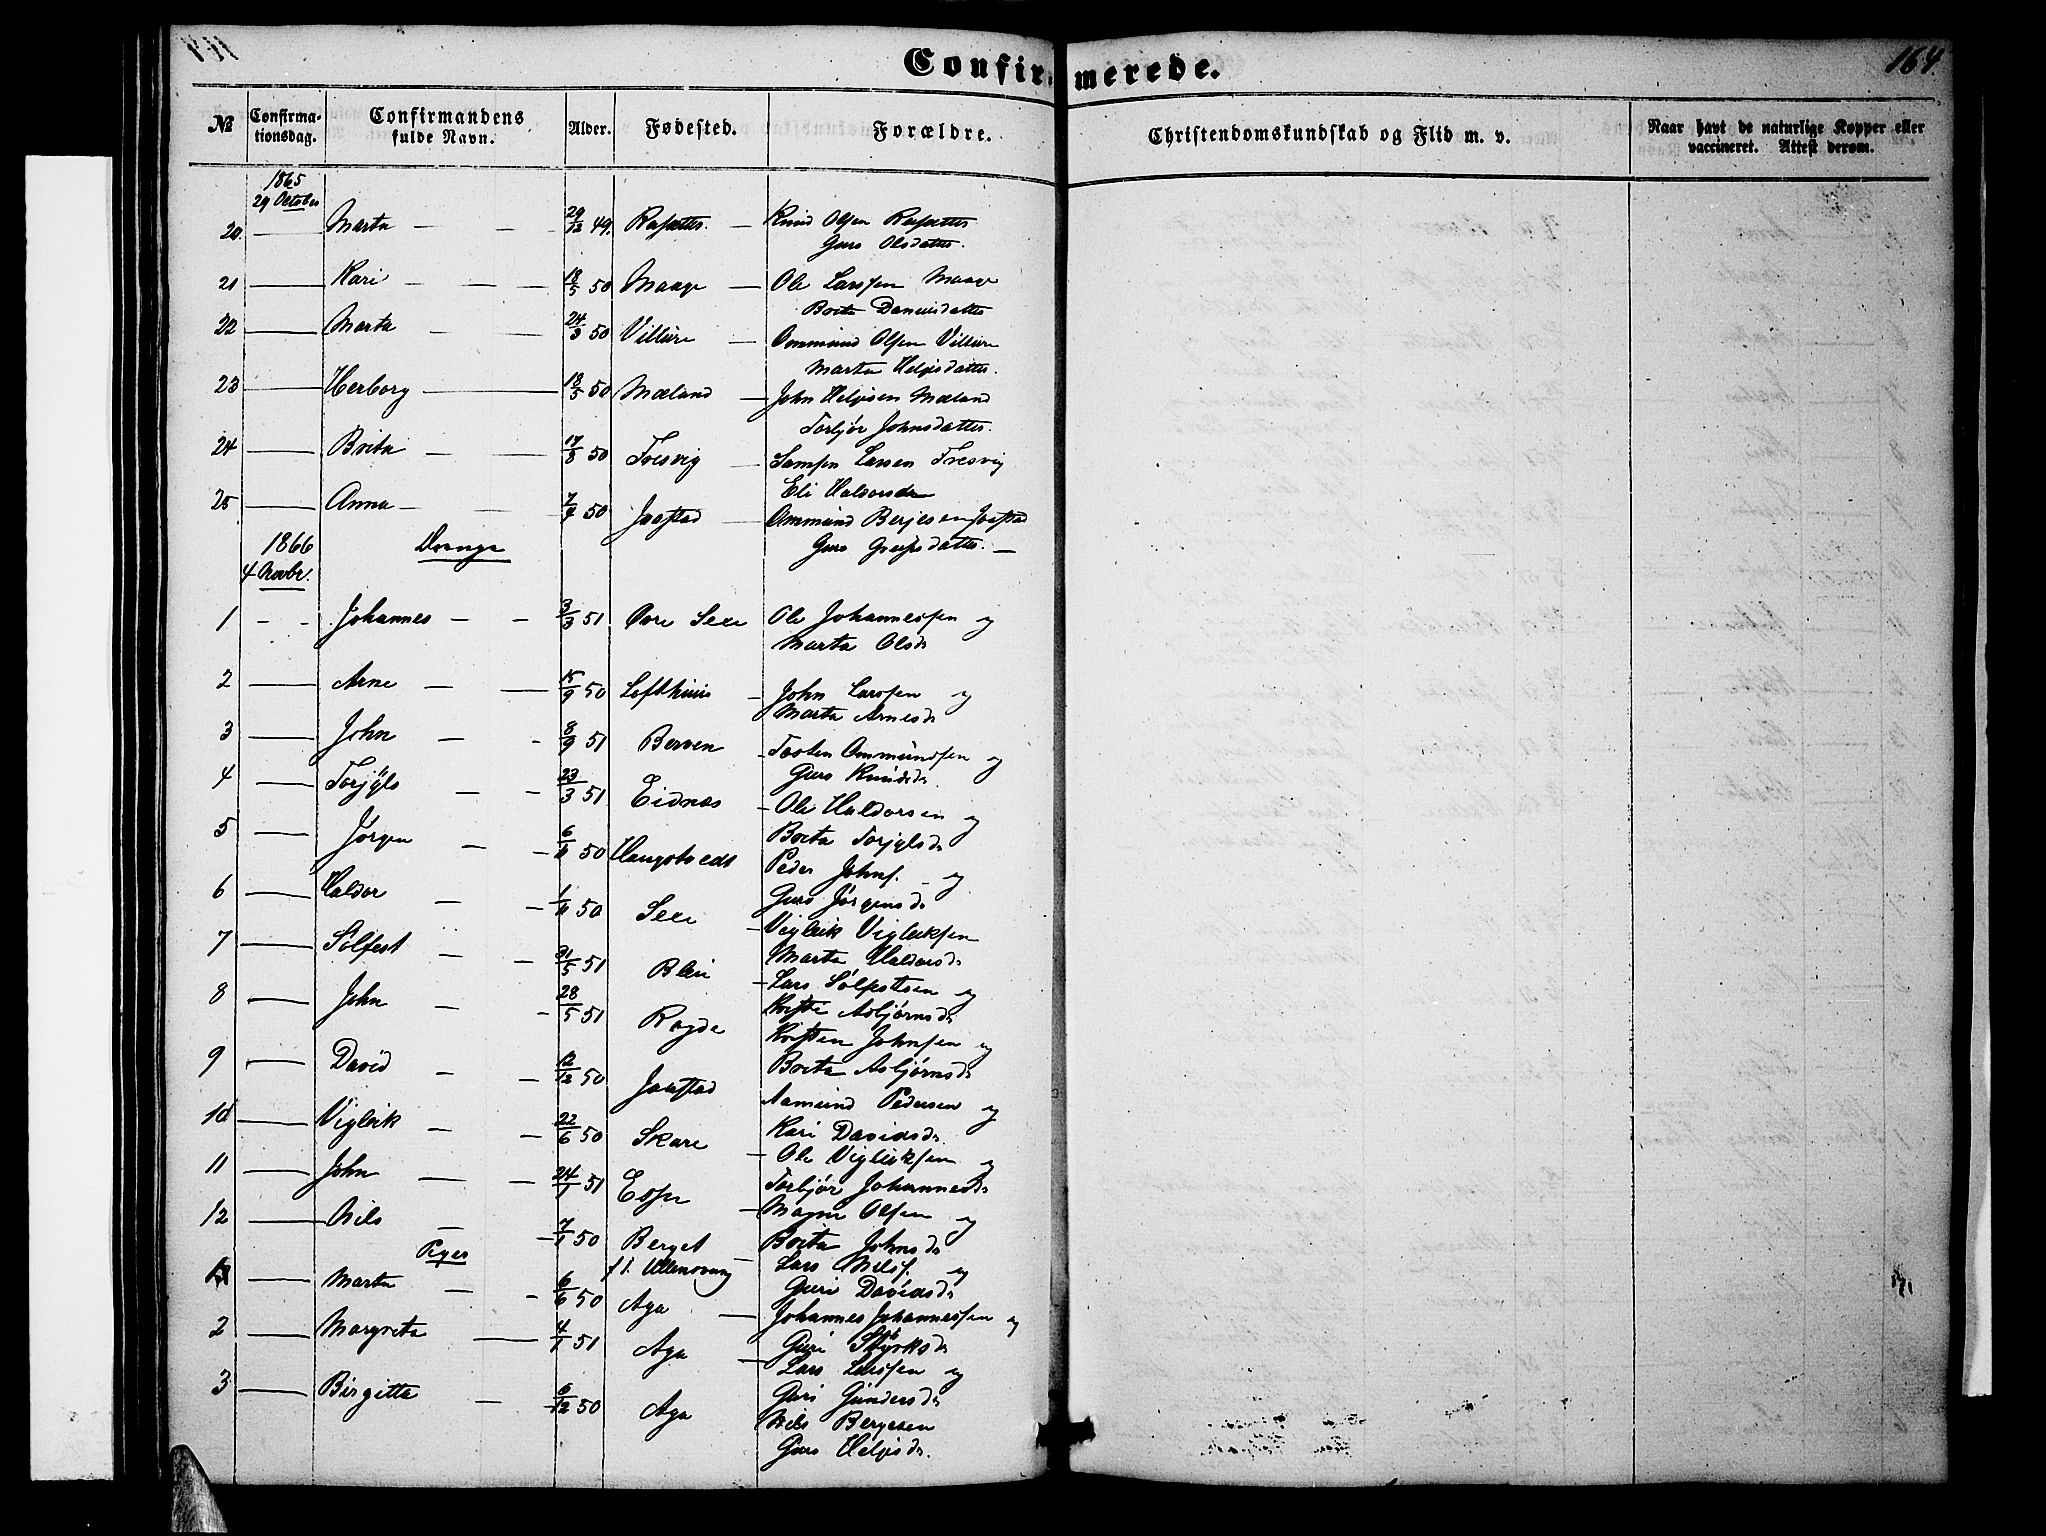 Confirmerede.
164.
№ Confirmationsdag. Confirmandens fulde Navn. Alder. Fødested. Forældre. Christendomskundskab og Flid m. v. Naar havt de naturlige Kopper eller vaccineret. Attest derom.
1865
29 October
20. Marta 29/12 49. Knud Olsen
Guro Olsdatter.
21 Kari 18/5 50 Maage Ole Larssen Maage
Brita
22 Marta 24/3 50 Villure Ommund Olsen Villure
Marta Helgesdatter.
23 Herborg 18/5 50 Mæland John Helgesen Mæland
Torbjør Johnsdatter.
24 Brita 17/8 50 Tresvig Samson Larsen Tresvig
Eli Haldorsdr
25 Anna 50 Jaastad Ommund Berjesen Jaastad
Guro Greipsdatter.
1866 Drenge
4 Novbr.
1 Johannes 3/3 51. Øvre Sexe Ole Johannessen og
Marta Olsdr
2 Arne 15/9 50 Lofthuus John Larssen og
Marta Arnesdr
3 John 8/9 51 Berven Tosten Ommundsen og
Guro Knudsdr
4 Torjyls 23/3 51 Eidnæs Ole Haldorsen og
Brita Torjylsdr
5 Jørgen 6/11 50 Haugstvedt Peder Johns. og
Guro Jørgensdr
6 Haldor 1/11 50 Sexe Vigleik Vigleiksen
Marta Haldorsdr
7 Sølfest 31/5 51 Bleie Lars Sølfestsen og
Asbjørnsdr
8 John 28/5 51 Røgde Kristen Johnsen og
Brita Asbjørnsdr
9 David 12/12 50 Jaastad Aamund Pedersen og
Kari Davidsdr
10 Vigleik 22/6 50 Skare Ole Vigleiksen og
Torbjør Johannesdr
11 John 24/1 51 Espe Magne Olsen og
Brita Johnsdr
12 Nils 7/1 50 Berget Lars Nilss. og
Piger f. i. Ullensvang Guri Davidsdr
1 Marta 6/6 50 Aga Johannes Johannessen og
Guri Styrksdr
2 Margreta 4/1 51 Aga Lars Larssen og
Guri Gundersdr
3 Birgitta 6/12 50 Aga Nils Bergesen
Guro Helgesdr.